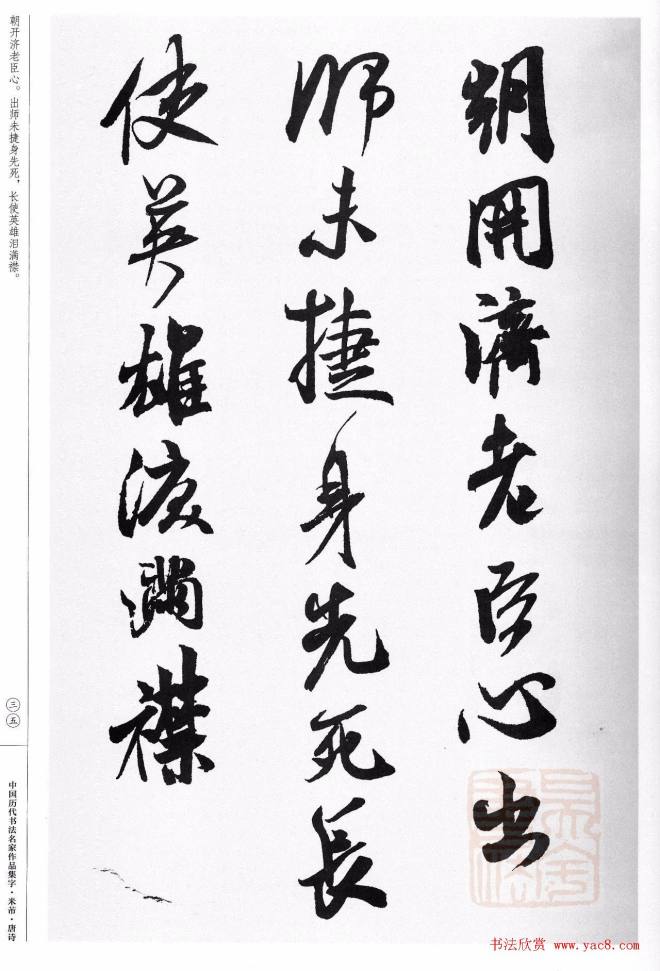 朝開濟老臣心出
師未捷身先死長
使英雄淚滿襟
朝开济老臣心。出师未捷身先死，长使英雄泪满襟。
三五
中国历代书法名家作品集字·米芾·唐诗
书法欣赏 www.yac8.com